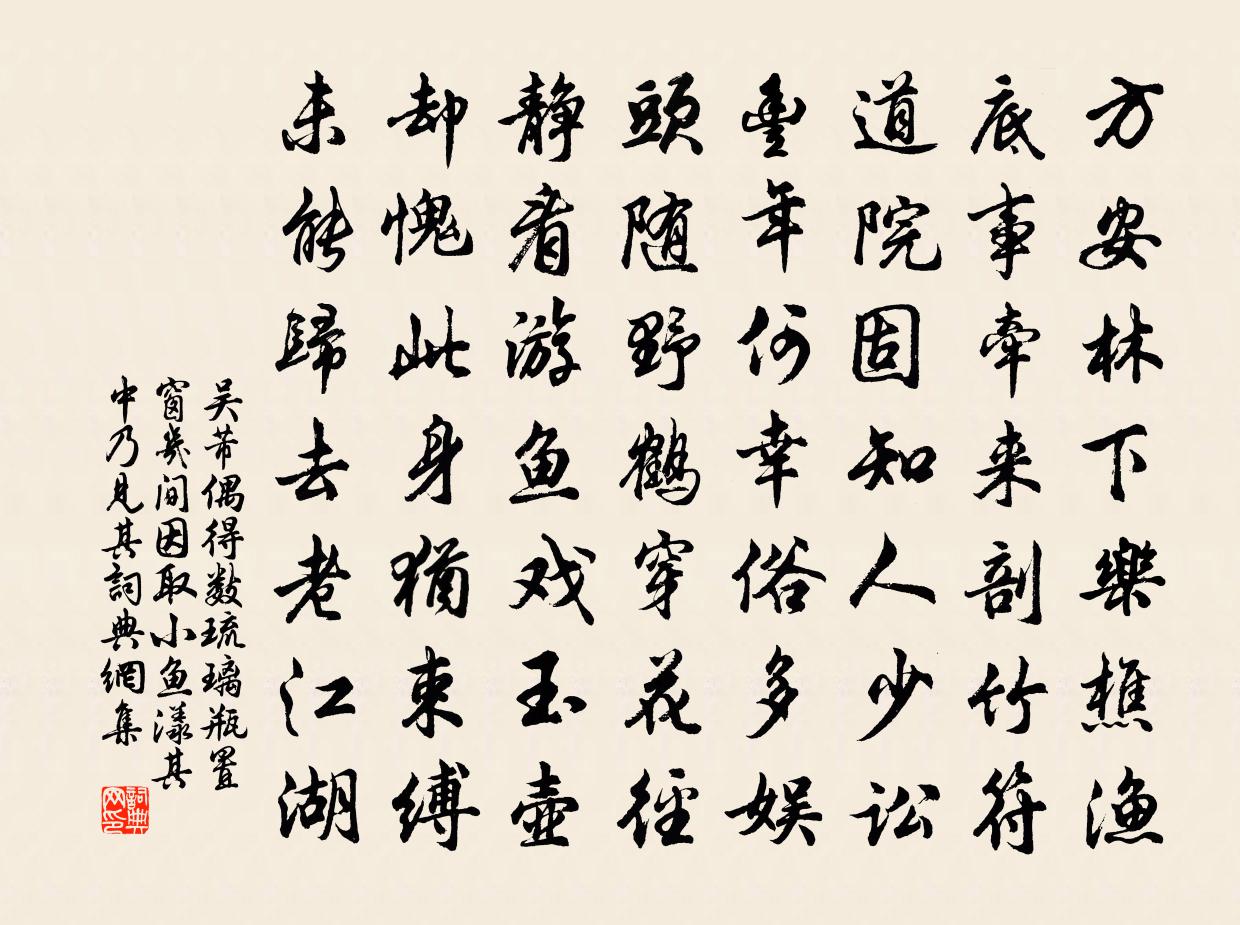 方安林下樂樵漁
底事牽来剖竹符
道院固知人少訟
豊年何幸俗多娱
頭随野鶴穿花徑
静看游鱼戏玉壺
却愧此身猶束缚
未能歸去老江湖
吴芾偶得数琉璃瓶置
窗幾间因取小鱼漾其
中乃見其詞典網集
詞典网印